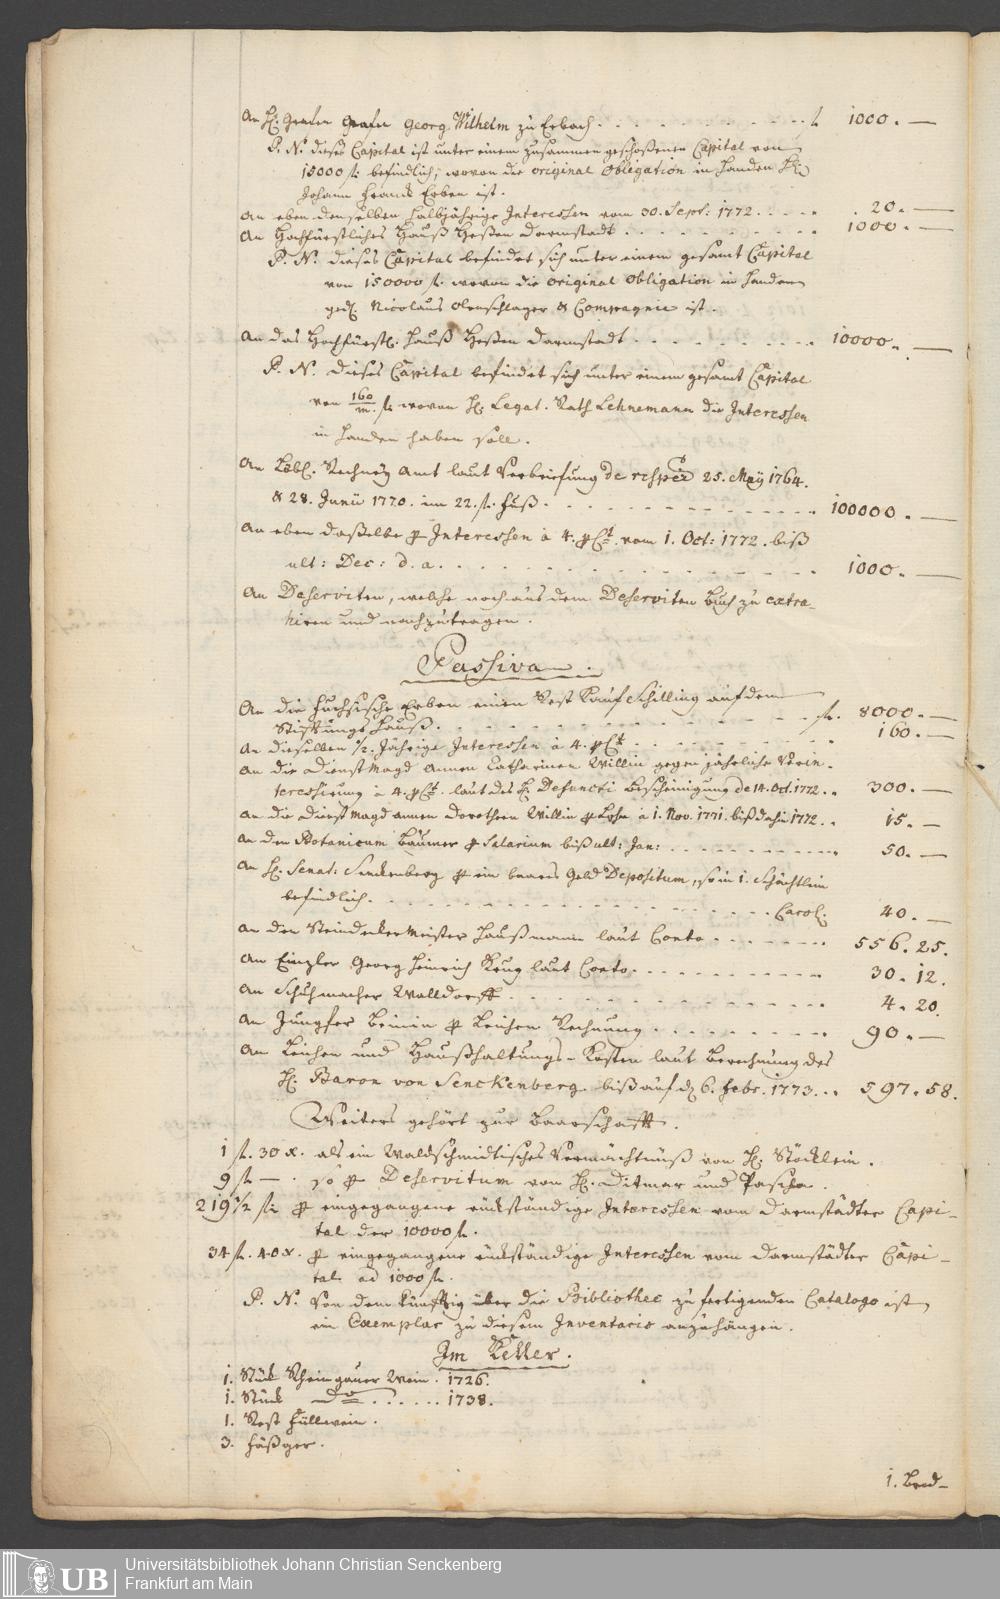 An H. Grafen Grafen Georg Wilhelm zu Erbach. fl. 1000. —
P. N. dieses Capital ist unter einem zusammen geschoßenen Capital von
15000 fl. befindlich, wovon die original Obligation in Handen H.
Johann Franck Erben ist.
An eben denselben halbjährige Interessen vom 30. Sept: 1772. 20. —
An Hochfürstliches Hauß Heßen Darmstadt 1000. —
P. N. dieses Capital befindet sich unter einem gesamt Capital
von 150000 fl. wovon die original Obligation in Handen
Nicolaus Olenschlager & Compagnie ist.
An das Hochfürstl. Hauß Heßen Darmstadt 10000. —
P. N. dieses Capital befindet sich unter einem gesamt Capital
von 160/m. fl. wovon H. Legat. Rath Lehnemann die Interessen
in Handen haben soll.
An Löbl. Rechney Amt laut Verbriefung de resp 25. May 1764.
& 28. Junii 1770. im 22. fl. Fuß. 100000. —
An eben daßelbe p Interessen à 4. pCt. vom 1. Oct: 1772. biß
ult: Dec: d. a. 1000. —
An Deserviten, welche noch aus dem Deserviten Buch zu extra-
hiren und nachzutragen.
Passiva.
An die Fuchsische Erben einen Rest Kauf Schilling auf dem
Stiftungs Hauß. fl. 8000. —
An dieselben 1/2. Jährige Interessen à 4. pCt. 160. —
An die Dienst Magd Annen Catharinen Willin gegen jährliche Verin-
teressirung à 4. pCt. laut des H. Defuncti Bescheinigung de 14. Oct. 1772. 300. —
An die Dienst Magd Annen Dorotheen Willin p Lohn à 1. Nov. 1771. biß dahin 1772. 15. —
An den Botanicum Bäumer p Salarium biß ult: Jan: 50. —
An H. Senat: Senckenberg p ein baares Geld Depositum, so in 1. Schächtlein
befindlich. Carol. 40. —
An den Steindecker Meister Haußmann laut Conto 556. 25.
An Einzler Georg Heinrich Krug laut Conto. 30. 12.
An Schuhmacher Walldorff 4. 20.
An Jungfer Beinin p Leichen Rechnung 90. —
An Leichen und Haußhaltungs-Kosten laut Berechnung des
H. Baron von Senckenberg biß auf d. 6. Febr. 1773. 597. 58.
Weiters gehört zur Baarschafft.
1 fl. 30 x. als ein Waldschmidtisches Vermächtnüß von H. Stöcklein.
9 fl — . so p Deservitum von H. Ditmar und Pascha.
219 1/2 fl: p eingegangene rückständige Interessen vom Darmstädter Capi-
tal der 10000 fl.
34 fl. 40 x. p eingegangene rückständige Interessen vom Darmstädter Capi-
tal ad 1000 fl.
P. N. Von dem künfftig über die Bibliothec zu fertigenden Catalogo ist
ein Exemplar zu diesem Inventario anzuhängen.
Im Keller.
1. Stück Rheingauer Wein. 1726.
1. Stück Do 1738.
1. Rest Füllwein.
3. Fäßger.
1. Bred-
UB
Universitätsbibliothek Johann Christian Senckenberg
Frankfurt am Main